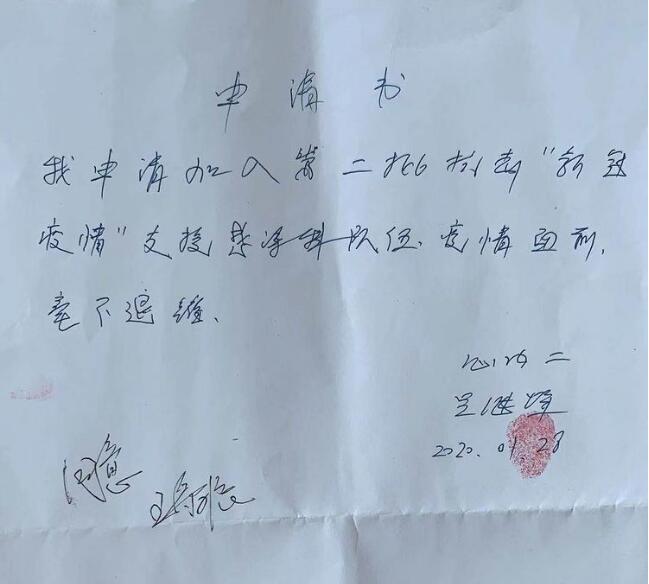 申请书
我申请加入第二批抗击"新冠
疫情"支援感染科队伍.疫情面前,
毫不退缩、
心内二
吴继雄
2020.01.28
同意